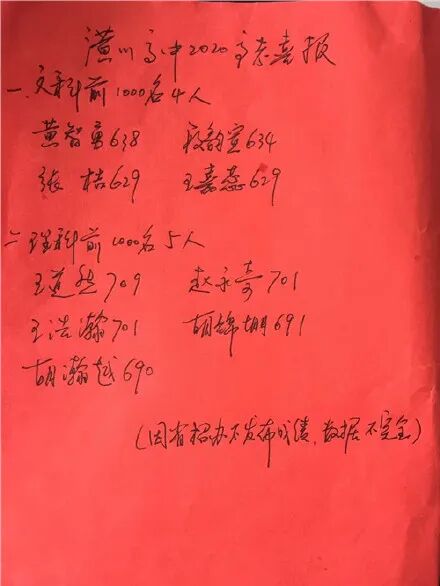 潢川高中2020高考喜报
一、文科前1000名4人
黄智勇638 段韵宣634
张桔629 王嘉蕊629
二 理科前1000名5人
王道然709 赵永奇701
王浩瀚701 胡锦明691
胡瀚越690
(因省招办不发布成绩，数据不完全)